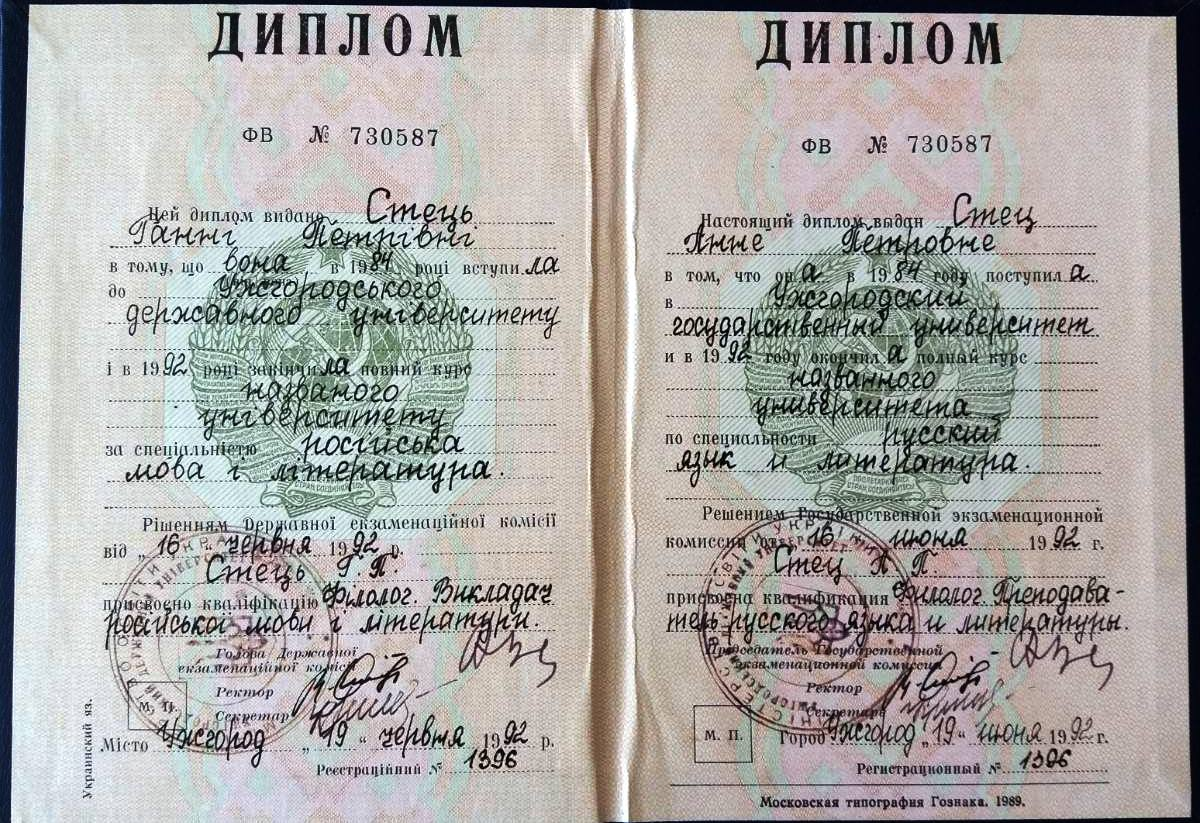 ДИПЛОМ
ФВ № 730587
Цей диплом видано Стець
Ганні Петрівні
в тому, що вона в 1984 році вступила
до Ужгородського
державного університету
і в 1992 році закінчила повний курс
названого
університету
за спеціальністю російська
мова і література.
Рішенням Державної екзаменаційної комісії
від „16“ червня 1992 р.
Стець Г. П.
присвоєно кваліфікацію Філолог. Викладач
російської мови і літератури.
Голова Державної
екзаменаційної комісії
Ректор
Секретар
М. П.
Місто Ужгород „19“ червня 1992 р.
Реєстраційний № 1396
Украинский яз.
ДИПЛОМ
ФВ № 730587
Настоящий диплом выдан Стец
Анне Петровне
в том, что она в 1984 году поступила
в Ужгородский
государственный университет
и в 1992 году окончила полный курс
названного
университета
по специальности русский
язык и литература.
Решением Государственной экзаменационной
комиссии от „16“ июня 1992 г.
Стец А П
присвоена квалификация Филолог Преподава-
тель русского языка и литературы.
Председатель Государственной
экзаменационной комиссии
Ректор
Секретарь
М. П.
Город Ужгород „19“ июня 1992 г.
Регистрационный № 1396
Московская типография Гознака. 1989.